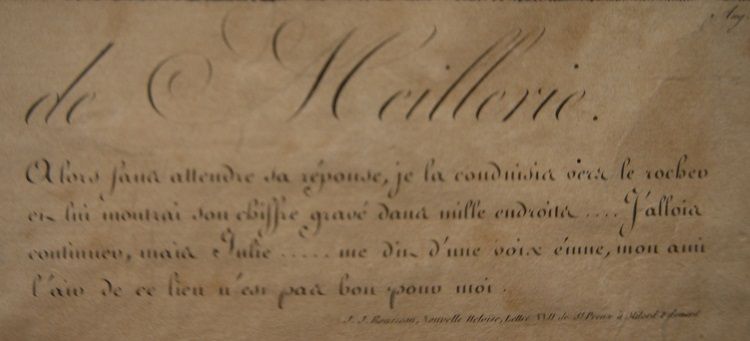 Aug
de Meillerie.
Alors sans attendre sa réponse, je la conduisis vers le rocher
et lui montrai son chiffre gravé dans mille endroits .... J'allois
continuer, mais Julie ..... me dit d'une voix émue, mon ami
l'air de ce lieu n'est pas bon pour moi.
J. J. Rousseau, Nouvelle Heloise, Lettre XVII de St Preux à Milord Edouard